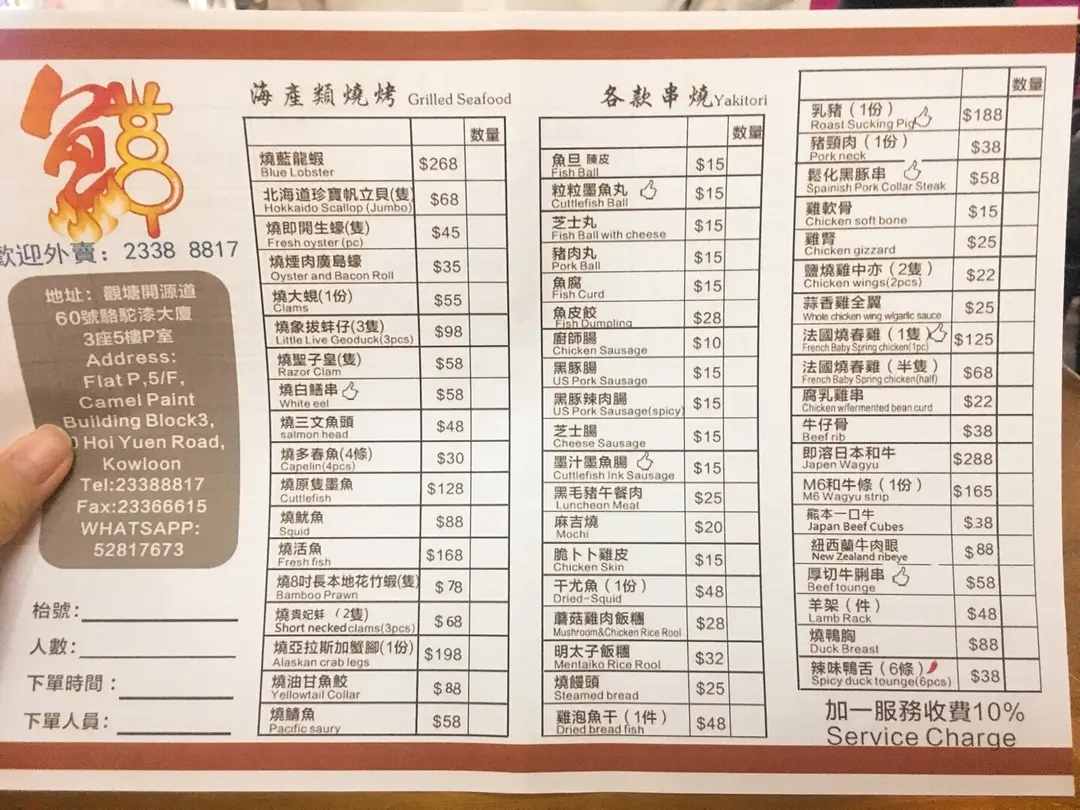 歡迎外賣：2338 8817
地址：觀塘開源道
60號駱駝漆大廈
3座5樓P室
Address:
Flat P,5/F,
Camel Paint
Building Block3,
Hoi Yuen Road,
Kowloon
Tel:23388817
Fax:23366615
WHATSAPP:
52817673
枱號：
人數：
下單時間：
下單人員：
海產類燒烤 Grilled Seafood
数量
燒藍龍蝦 $268
Blue Lobster
北海道珍寶帆立貝(隻) $68
Hokkaido Scallop (Jumbo)
燒即開生蠔(隻) $45
Fresh oyster (pc)
燒煙肉廣島蠔 $35
Oyster and Bacon Roll
燒大蜆(1份) $55
Clams
燒象拔蚌仔(3隻) $98
Little Live Geoduck(3pcs)
燒聖子皇(隻) $58
Razor Clam
燒白鱔串 $58
White eel
燒三文魚頭 $48
salmon head
燒多春魚(4條) $30
Capelin(4pcs)
燒原隻墨魚 $128
Cuttlefish
燒魷魚 $88
Squid
燒活魚 $168
Fresh fish
燒8吋長本地花竹蝦(隻) $78
Bamboo Prawn
燒貴妃蚌（2隻) $68
Short necked clams(3pcs)
燒亞拉斯加蟹腳(1份) $198
Alaskan crab legs
燒油甘魚鮫 $88
Yellowtail Collar
燒鯖魚 $58
Pacific saury
各款串燒 Yakitori
数量
魚旦 陳皮 $15
Fish Ball
粒粒墨魚丸 $15
Cuttlefish Ball
芝士丸 $15
Fish Ball with cheese
豬肉丸 $15
Pork Ball
魚腐 $15
Fish Curd
魚皮餃 $28
Fish Dumpling
廚師腸 $10
Chicken Sausage
黑豚腸 $15
US Pork Sausage
黑豚辣肉腸 $15
US Pork Sausage(spicy)
芝士腸 $15
Cheese Sausage
墨汁墨魚腸 $15
Cuttlefish Ink Sausage
黑毛豬午餐肉 $25
Luncheon Meat
麻吉燒 $20
Mochi
脆卜卜雞皮 $15
Chicken Skin
干尤魚（1份） $48
Dried-Squid
蘑菇雞肉飯糰 $28
Mushroom&Chicken Rice Rool
明太子飯糰 $32
Mentaiko Rice Rool
燒饅頭 $25
Steamed bread
雞泡魚干（1件） $48
Dried bread fish
数量
乳豬（1份） $188
Roast Sucking Pig
豬頸肉（1份） $38
Pork neck
鬆化黑豚串 $58
Spainish Pork Collar Steak
雞軟骨 $15
Chicken soft bone
雞腎 $25
Chicken gizzard
鹽燒雞中亦（2隻） $22
Chicken wings(2pcs)
蒜香雞全翼 $25
Whole chicken wing w/garlic sauce
法國燒春雞（1隻） $125
French Baby Spring chicken(1pc)
法國燒春雞（半隻） $68
French Baby Spring chicken(half)
腐乳雞串 $22
Chicken w/fermented bean curd
牛仔骨 $38
Beef rib
即溶日本和牛 $288
Japen Wagyu
M6和牛條（1份） $165
M6 Wagyu strip
熊本一口牛 $38
Japan Beef Cubes
紐西蘭牛肉眼 $88
New Zealand ribeye
厚切牛脷串 $58
Beef tounge
羊架（件） $48
Lamb Rack
燒鴨胸 $88
Duck Breast
辣味鴨舌（6條） $38
Spicy duck tounge(6pcs)
加一服務收費10%
Service Charge